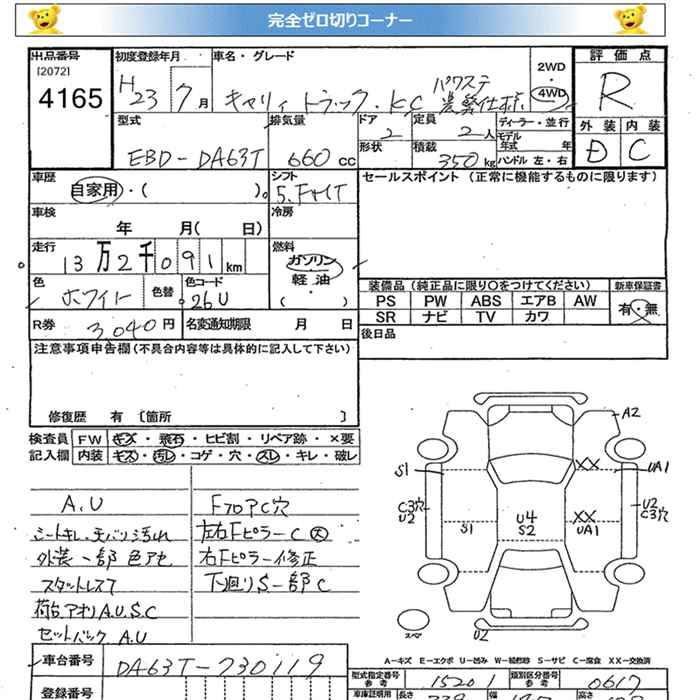 完全ゼロ切りコーナー
出品番号
[2072]
4165
初度登録年月
H23 7月
車名・グレード
キャリィ トラック・KC パワステ 農繁仕様
2WD
・
4WD
評価点
R
型式
EBD-DA63T
排気量
660 cc
ドア
2
形状
定員
2人
積載
350 kg
ディーラー・並行
モデル年式 年
ハンドル 左・右
外装
D
内装
C
車歴
自家用・( )
シフト
5.F
車検
年 月( 日)
冷房
走行
13万2千091 km
燃料
ガソリン
軽油
・( )
色
ホワイト
色替
色コード
26U
R券
3,040円
名変通知期限 月 日
セールスポイント (正常に機能するものに限ります)
装備品 (純正品に限り○をつけてください)
新車保証書
PS PW ABS エアB AW
SR ナビ TV カワ
有・無
後日品
注意事項申告欄 (不具合内容等は具体的に記入して下さい)
修復歴 有 [箇所 ]
検査員記入欄
FW キズ・飛石・ヒビ割・リペア跡・×要
内装 キズ・汚レ・コゲ・穴・スレ・キレ・破レ
A.U
シートキレ・天バリ汚れ
外装一部 色アセ
スタットレス7
荷台.アオリ A.U.S.C
セットバック A.U
FフロアC穴
左右Fピラー C 大
右Fピラー修正
下廻りS一部C
A2
S1
XX
UA1
C3穴
U2
S1
U4
S2
XX
UA1
U2
C3穴
スペア
U2
A-キズ E-エクボ U-凹み W-補修跡 S-サビ C-腐食 XX-交換済
車台番号
DA63T-730119
登録番号
型式指定番号
参考
15201
類別区分番号
参考
0617
車庫証明用
長さ
高さ